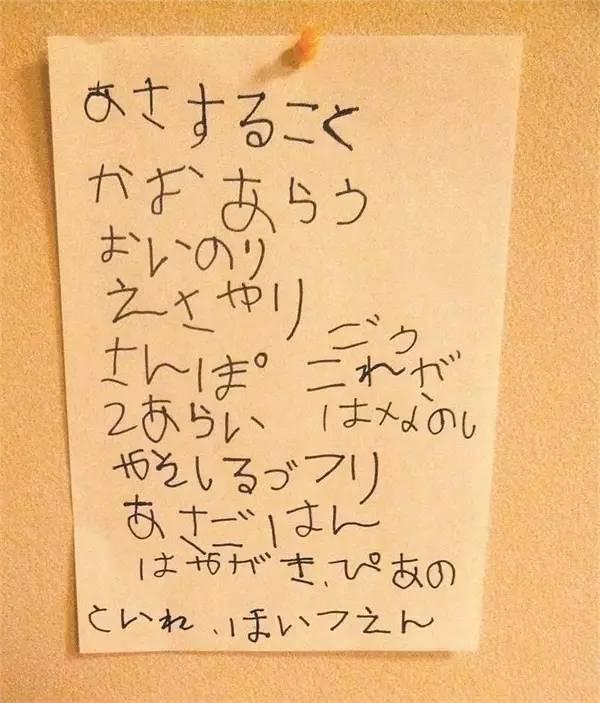 あさすること
かおあらう
おいのり
えさやり
さんぽ
てあらい
みそしるづくり
あさごはん
はみがき、ぴあの
といれ、ほいくえん
これが
はなのし
ごと